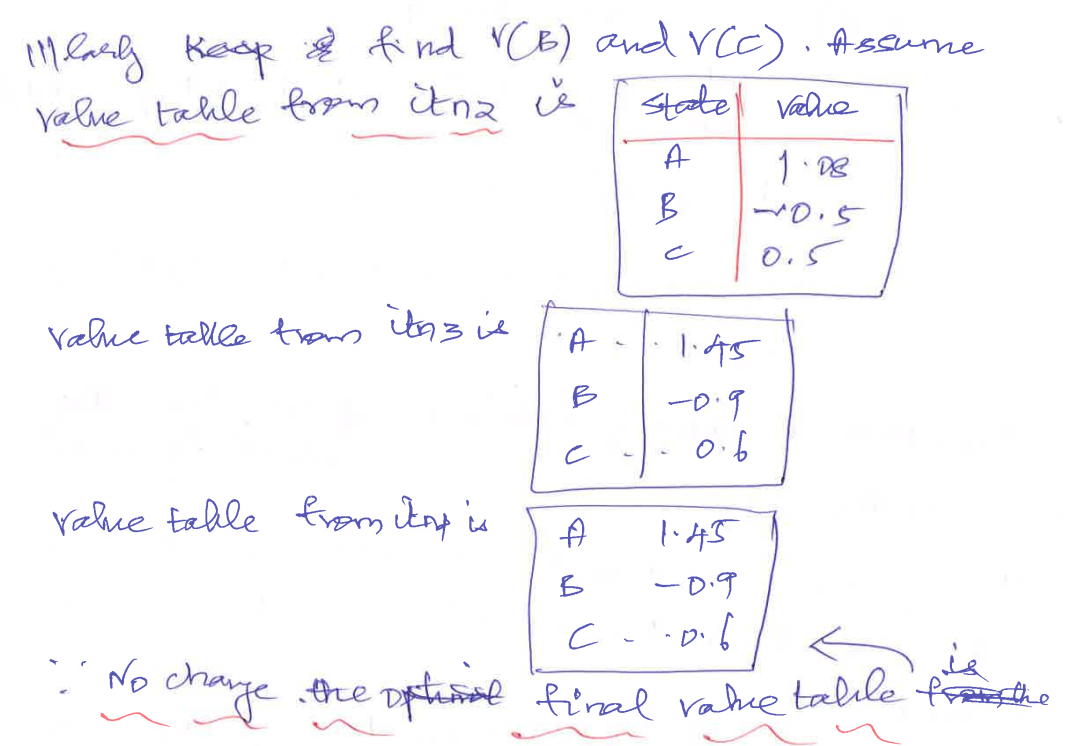 |||larly find V(B) and V(C). Assume
value table from itn2 is
state value
A 1.08
B -0.5
C 0.5
value table from itn3 is
A - . 1.45
B -0.9
C - . 0.6
value table from itn4 is
A 1.45
B -0.9
C - . 0.6
∵ No change. the final value table is